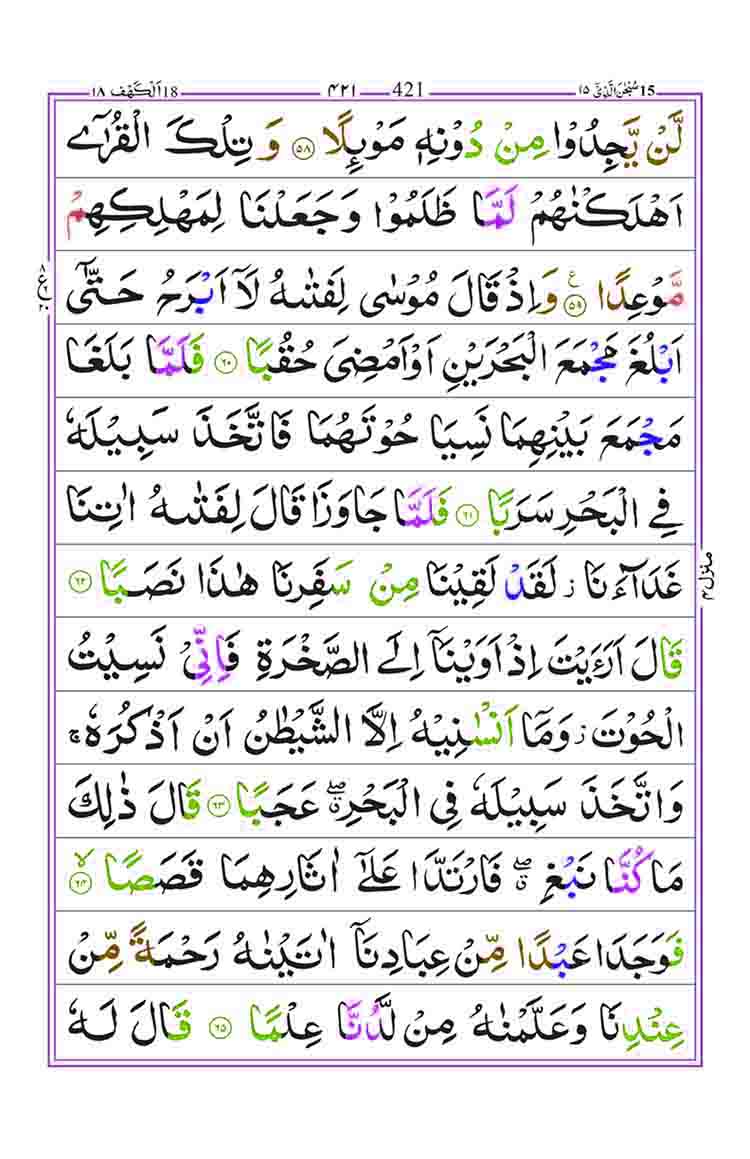 15 سُبْحٰنَ الَّذِيْۤ ١٥ 421 ٤٢١ 18 اَلْكَهْف ١٨
لَّنْ يَّجِدُوْا مِنْ دُوْنِهٖ مَوْىِٕلًا ۝٥٨ وَ تِلْكَ الْقُرٰۤى
اَهْلَكْنٰهُمْ لَمَّا ظَلَمُوْا وَجَعَلْنَا لِمَهْلِكِهِمْ
مَّوْعِدًا ۝٥٩ ع وَاِذْ قَالَ مُوْسٰى لِفَتٰىهُ لَاۤ اَبْرَحُ حَتّٰۤى
اَبْلُغَ مَجْمَعَ الْبَحْرَيْنِ اَوْ اَمْضِيَ حُقُبًا ۝٦٠ فَلَمَّا بَلَغَا
مَجْمَعَ بَيْنِهِمَا نَسِيَا حُوْتَهُمَا فَاتَّخَذَ سَبِيْلَهٗ
فِي الْبَحْرِ سَرَبًا ۝٦١ فَلَمَّا جَاوَزَا قَالَ لِفَتٰىهُ اٰتِنَا
غَدَآءَنَا ز لَقَدْ لَقِيْنَا مِنْ سَفَرِنَا هٰذَا نَصَبًا ۝٦٢
قَالَ اَرَءَيْتَ اِذْ اَوَيْنَاۤ اِلَى الصَّخْرَةِ فَاِنِّيْ نَسِيْتُ
الْحُوْتَ ز وَمَاۤ اَنْسٰىنِيْهُ اِلَّا الشَّيْطٰنُ اَنْ اَذْكُرَهٗ ج
وَاتَّخَذَ سَبِيْلَهٗ فِي الْبَحْرِ ۖق عَجَبًا ۝٦٣ قَالَ ذٰلِكَ
مَا كُنَّا نَبْغِ ۖق فَارْتَدَّا عَلٰۤى اٰثَارِهِمَا قَصَصًا ۝٦٤ لا
فَوَجَدَا عَبْدًا مِّنْ عِبَادِنَاۤ اٰتَيْنٰهُ رَحْمَةً مِّنْ
عِنْدِنَا وَعَلَّمْنٰهُ مِنْ لَّدُنَّا عِلْمًا ۝٦٥ قَالَ لَهٗ
ع
منزل ٤